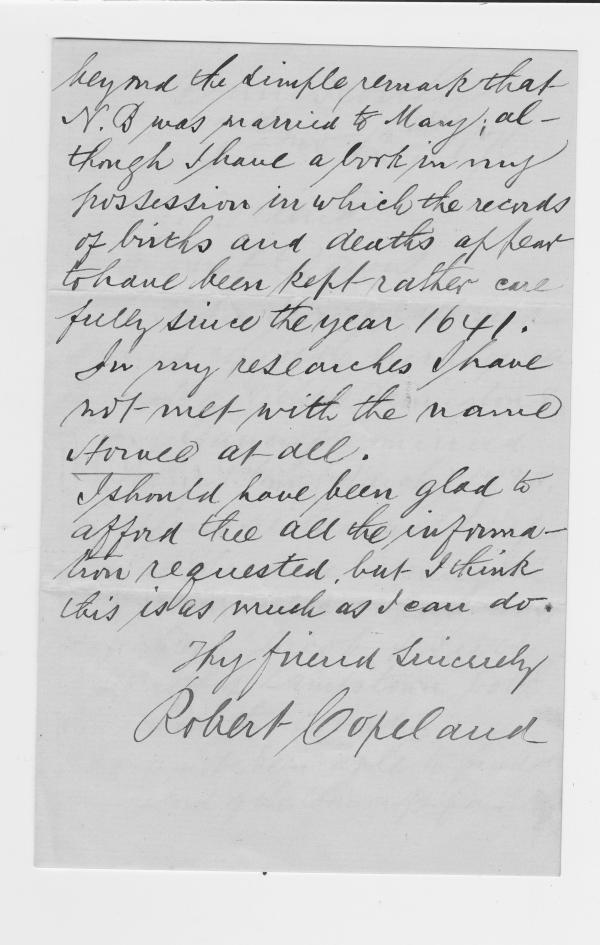 beyond the simple remark that
N. B was married to Mary; al-
though I have a book in my
possession in which the records
of births and deaths appear
to have been kept rather care
fully since the year 1641.
In my researches I have
not met with the name
at all.
I should have been glad to
afford thee all the informa-
tion requested, but I think
this is as much as I can do.
Thy friend Sincerely
Robert Copeland